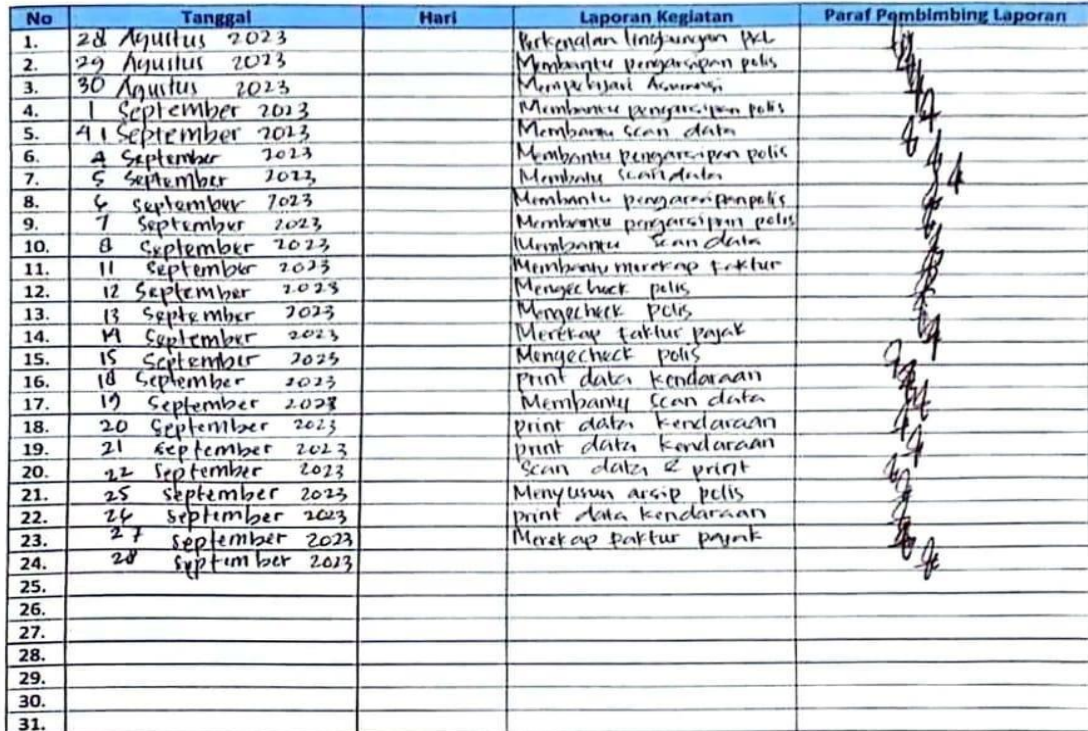 No Tanggal Hari Laporan Kegiatan Paraf Pembimbing Laporan
1. 28 Agustus 2023 Perkenalan lingkungan PKL
2. 29 Agustus 2023 Membantu pengarsipan polis
3. 30 Agustus 2023 Mempelajari Asuransi
4. 1 September 2023 Membantu pengarsipan polis
5. September 2023 Membantu scan data
6. 4 September 2023 Membantu pengarsipan polis
7. 5 September 2023 Membatu scan data
8. 6 September 2023 Membantu pengarsipan polis
9. 7 September 2023 Membantu pengarsipan polis
10. 8 September 2023 Membantu scan data
11. 11 September 2023 Membantu merekap faktur
12. 12 September 2023 Mengecheck polis
13. 13 September 2023 Mengecheck polis
14. 14 September 2023 Merekap faktur pajak
15. 15 September 2023 Mengecheck polis
16. 18 September 2023 print data kendaraan
17. 19 September 2023 Membantu scan data
18. 20 September 2023 print data kendaraan
19. 21 September 2023 print data kendaraan
20. 22 September 2023 Scan data & print
21. 25 September 2023 Menyusun arsip polis
22. 26 September 2023 print data kendaraan
23. 27 September 2023 Merekap faktur pajak
24. 28 September 2023
25.
26.
27.
28.
29.
30.
31.